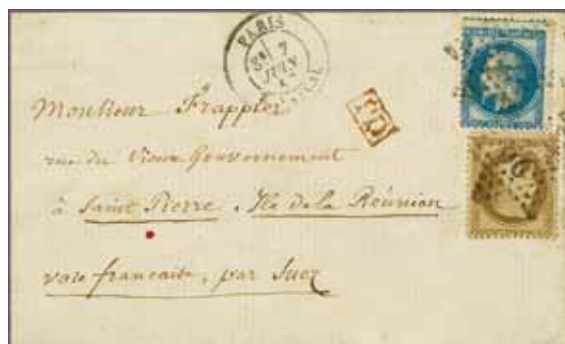 PARIS
7
JUIN
Monsieur Frappier
rue du Vieux Gouvernement
à Saint Pierre. Ile de la Réunion
voie française, par Suez
PD